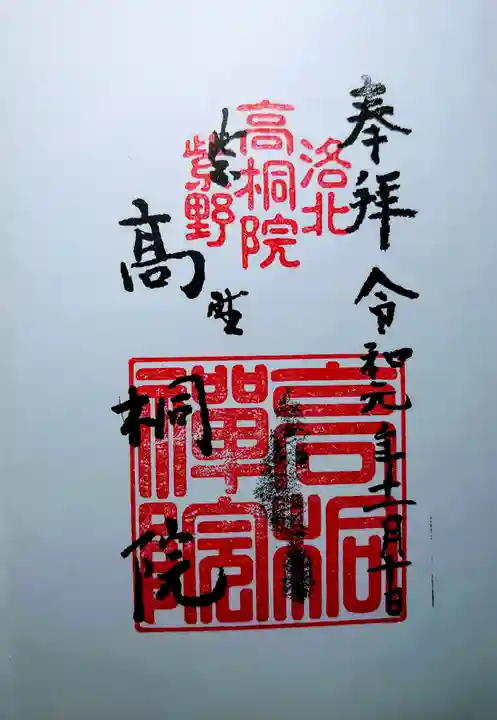 奉拝 令和元年十一月十日
紫野
高桐院
洛北
高桐院
紫野
高桐
禪院